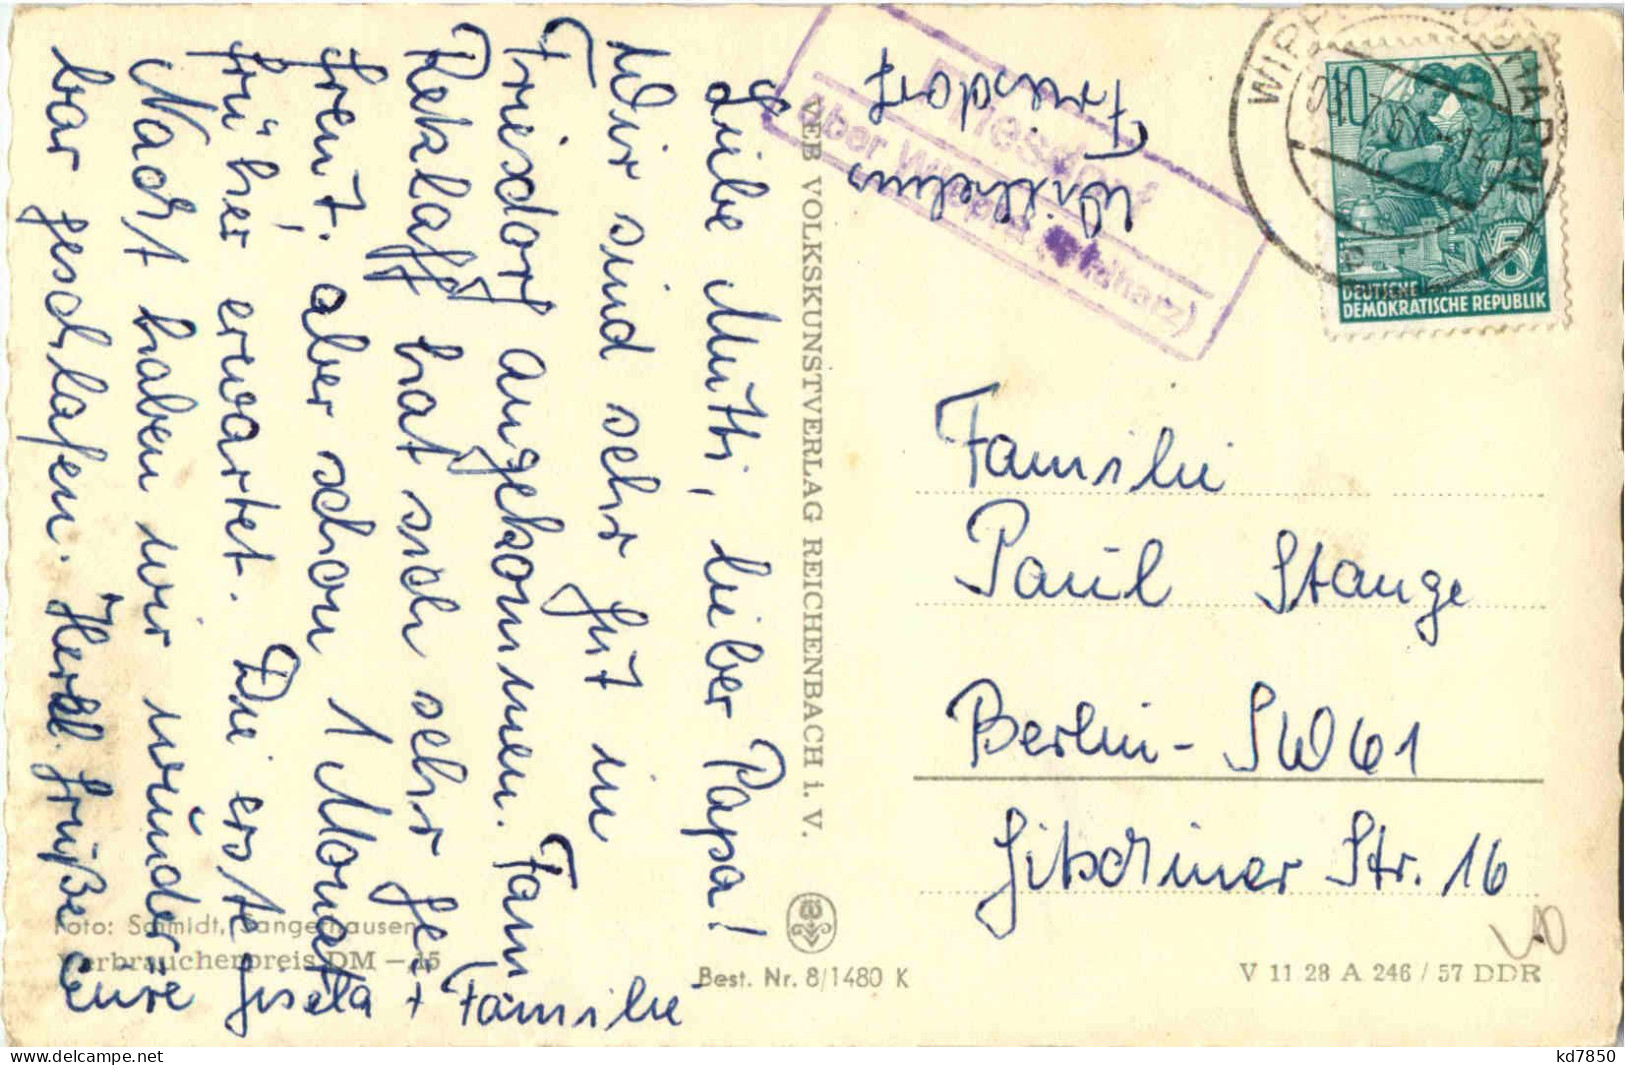 Liebe Mutti, lieber Papa!
Wir sind sehr gut in
Friesdorf angekommen. Fam.
Reklaff hat sich sehr ge-
freut, aber schon 1 Monat
früher erwartet. Die erste
Nacht haben wir wunder-
bar geschlafen. Herzl. Grüße
Eure Gisela + Familie
Wilhelms
Friesdorf
Friesdorf
über Wippra (Südharz)
WIPPRA (SÜDHARZ)
10
5
DEUTSCHE
DEMOKRATISCHE REPUBLIK
VEB VOLKSKUNSTVERLAG REICHENBACH i. V.
Familie
Paul Stange
Berlin-SW61
Gitschiner Str. 16
Foto: Schmidt, Sangerhausen
Verbraucherpreis DM –.15
Best. Nr. 8/1480 K
V 11 28 A 246 / 57 DDR
kd7850